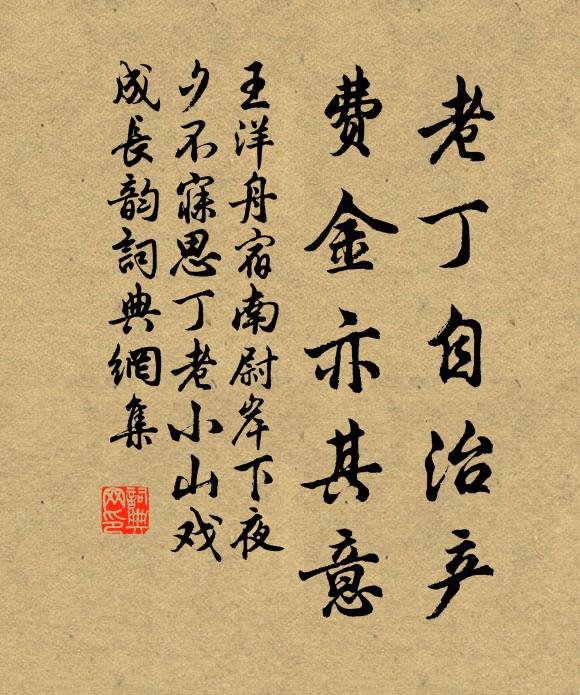 老丁自治产
費金亦其意
王洋舟宿南尉岸下夜
少不寐思丁老小山戏
成長韵詞典網集
詞典网印